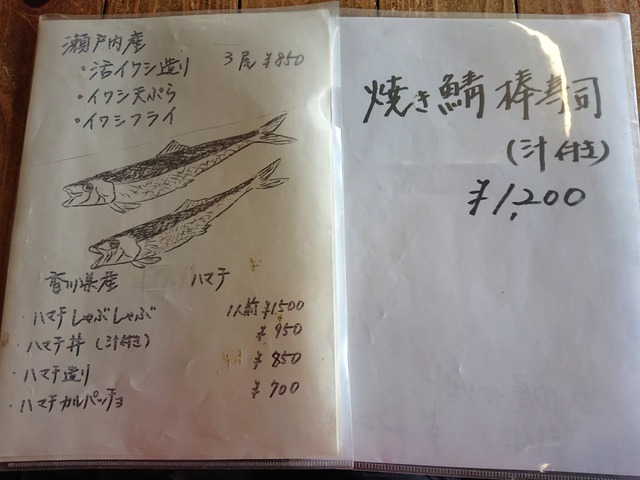 瀬戸内産
・活イワシ造り 3尾 ¥850
・イワシ天ぷら
・イワシフライ
香川県産 ハマチ
・ハマチしゃぶしゃぶ 1人前 ¥1500
・ハマチ丼(汁付き) ¥950
・ハマチ造り ¥850
・ハマチカルパッチョ ¥700
焼き鯖棒寿司
(汁付き)
¥1,200